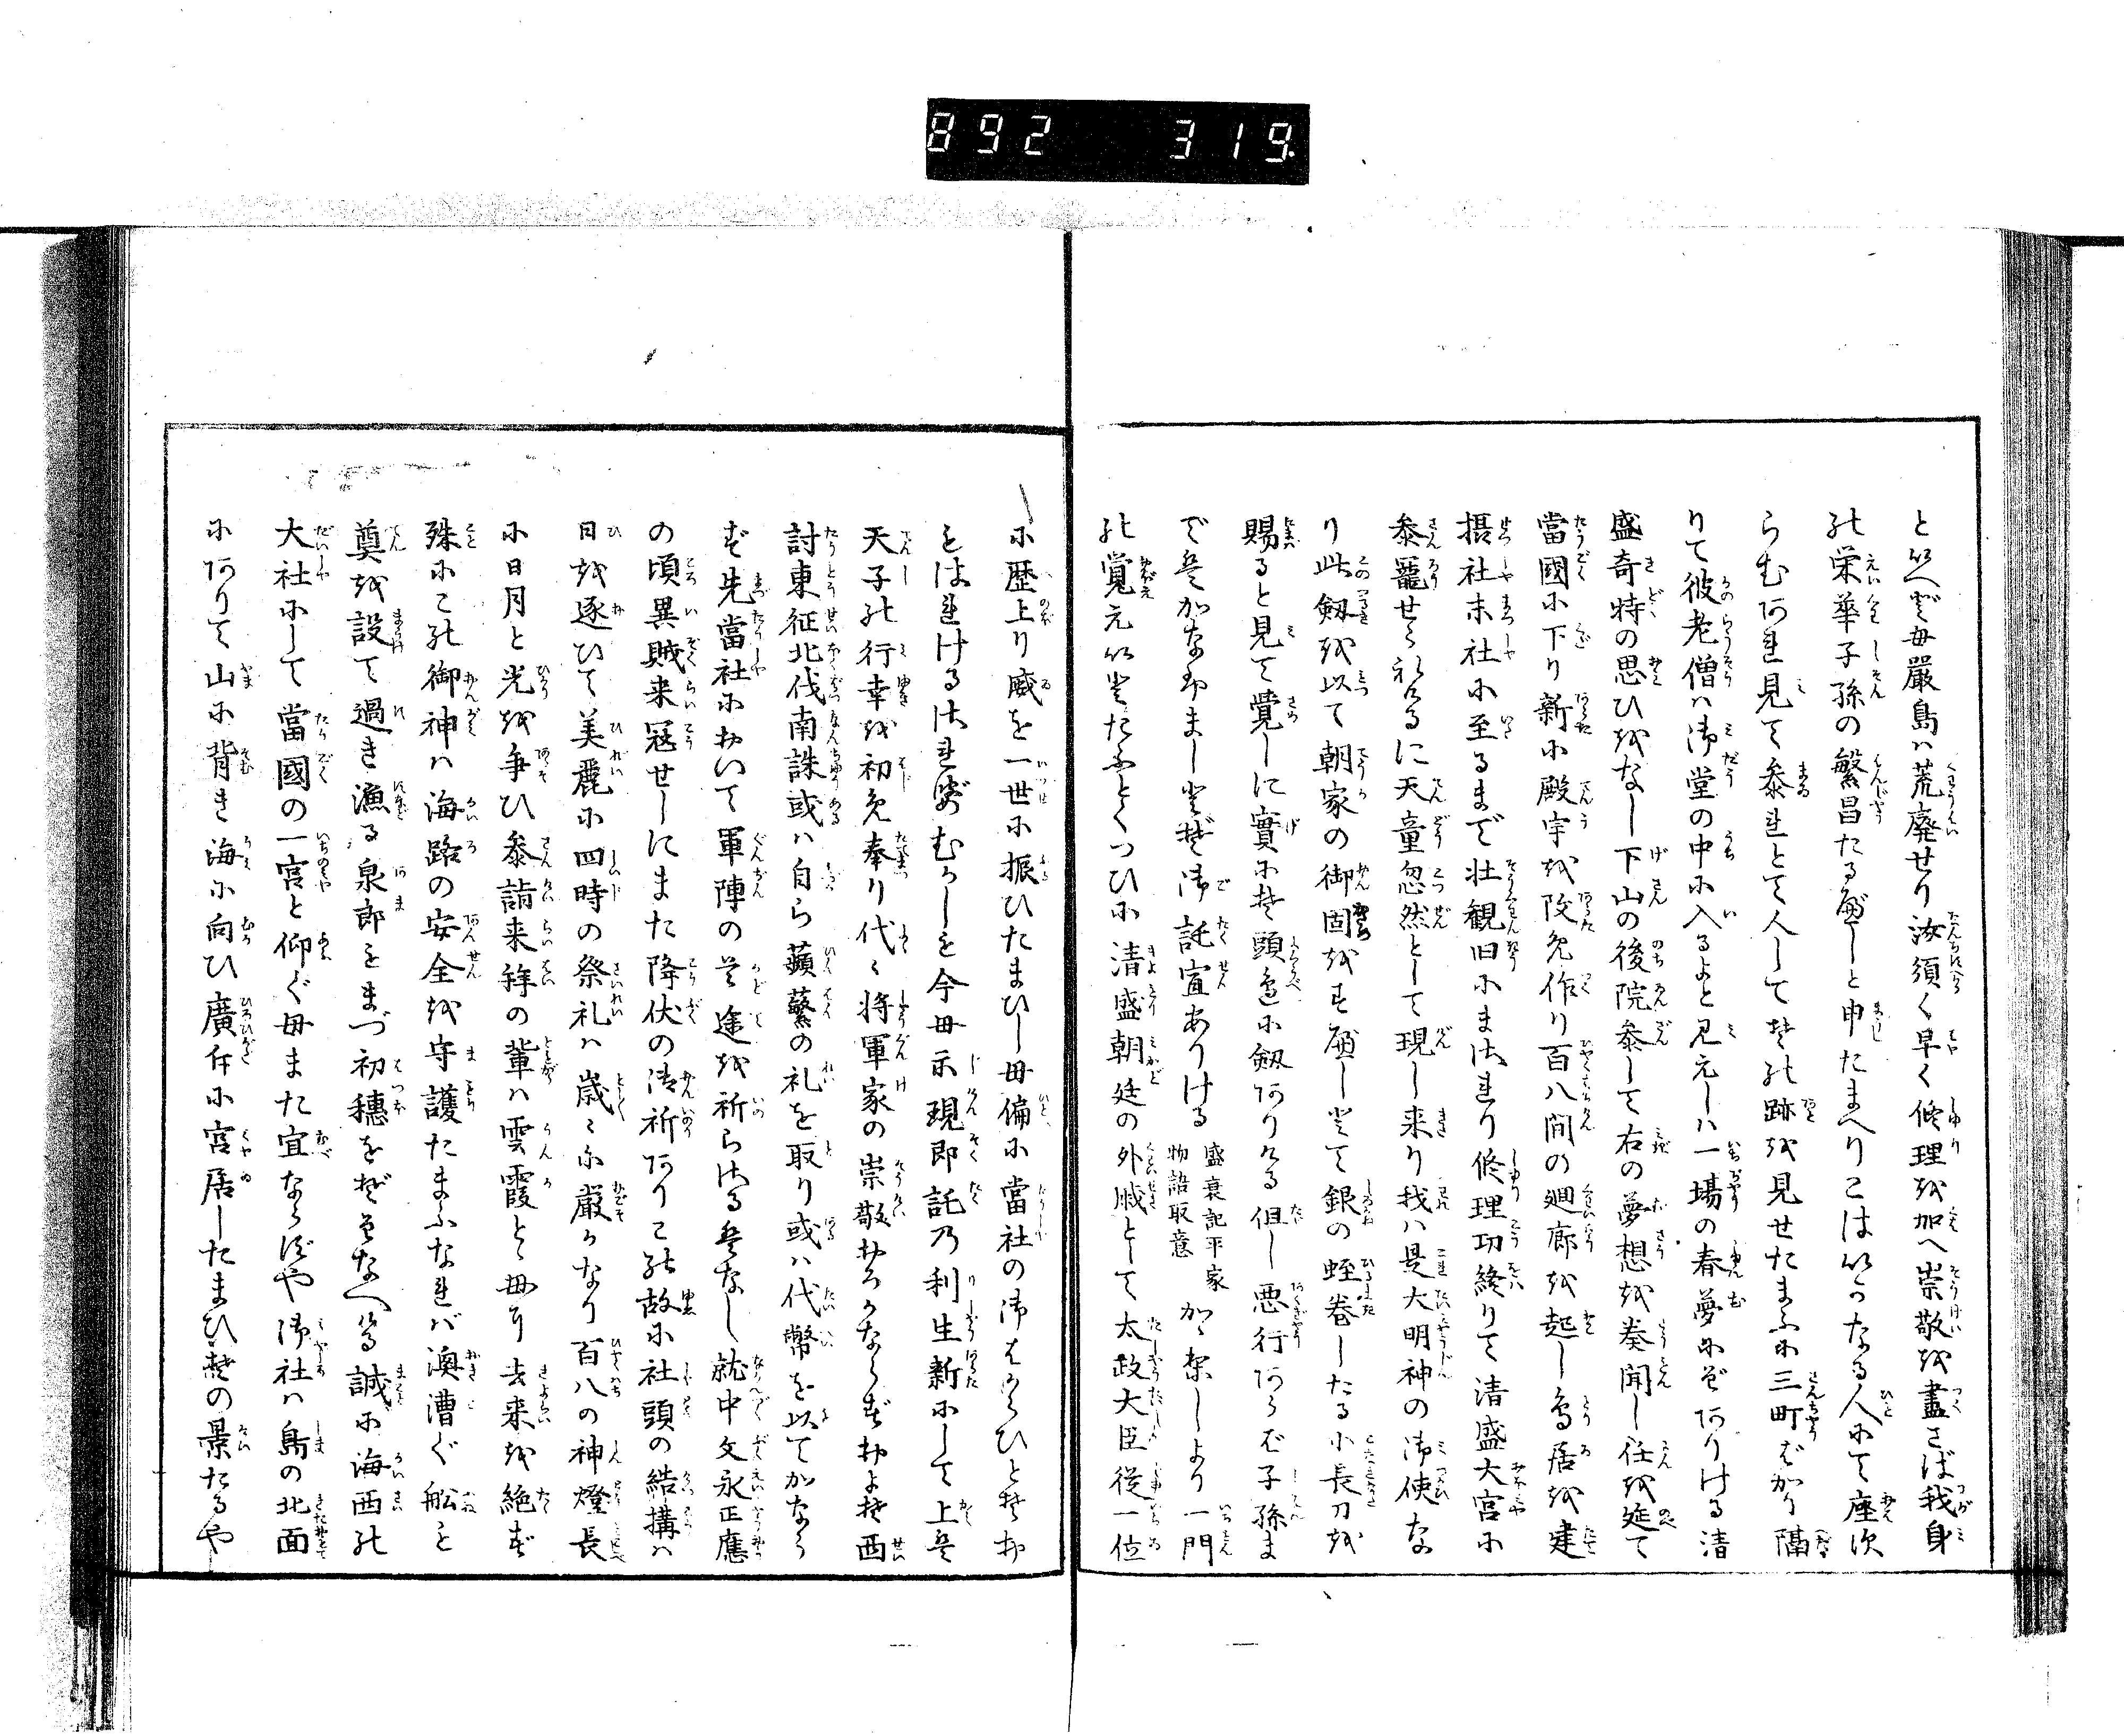 892 319.
といへども嚴島ハ荒廢せり汝須く早く修理を加へ崇敬を盡さば我身
の栄華子孫の繁昌たるべしと申たまへりこはいかなる人にて座次
らむあれ見て参れとて人してその跡を見せたまふに三町ばかり隔
りて彼老僧ハ御堂の中に入るよと見えしハ一場の春夢にぞありける清
盛奇特の思ひをなし下山の後院参して右の夢想を奏聞し任を延て
當國に下り新に殿宇を改め作り百八間の廻廊を起し鳥居を建
摂社末社に至るまで壮観旧にまされり修理功終りて清盛大宮に
参籠せられけるに天童忽然として現し来り我ハ是大明神の御使な
り此劔を以て朝家の御固をすべしとて銀の蛭巻したる小長刀を
賜ると見て覺しに實にも頭邉に劔ありける但し悪行あらば子孫ま
では かなふまじとぞ御託宣ありける
盛衰記平家
物語取意
かゝりしより一門
の覺えいとたふとくつひに清盛朝廷の外戚として太政大臣従一位
に歴上り威を一世に振ひたまひしも偏に當社の御たまひとぞお
もはれけるされどむかしも今も示現即託乃利生新にして上は
天子の行幸を初め奉り代々将軍家の崇敬おろかならずおよそ西
討東征北伐南誅或ハ自ら蘋蘩の礼を取り或ハ代幣を以てかなら
ず先當社において軍陣のかど途を祈らせるはなし就中文永正應
の頃異賊来冦せしにまた降伏の御祈ありこの故に社頭の結構ハ
日を逐ひて美麗に四時の祭礼ハ歳々に厳かなり百八の神燈長
に日月と光を争ひ参詣来拜の輩ハ雲霞とゝもに去来を絶ず
殊にこの御神ハ海路の安全を守護たまふなれバ澳漕ぐ船も
奠を設て過き漁る泉郎もまづ初穂をぞそなへける誠に海西の
大社にして當國の一宮と仰ぐもまた宜ならずや御社ハ島の北面
にありて山に背き海に向ひ廣前に宮居したまひその景たるや